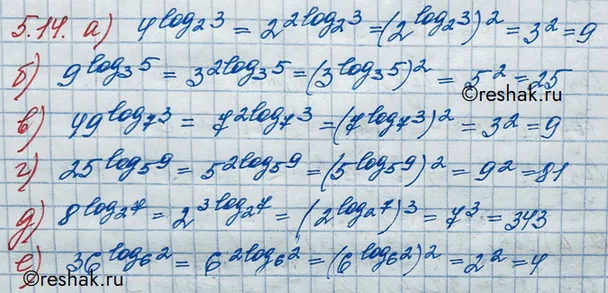 5.14. а) 4^{log_2 3} = 2^{2log_2 3} = (2^{log_2 3})^2 = 3^2 = 9
б) 9^{log_3 5} = 3^{2log_3 5} = (3^{log_3 5})^2 = 5^2 = 25
©reshak.ru
в) 49^{log_7 3} = 7^{2log_7 3} = (7^{log_7 3})^2 = 3^2 = 9
г) 25^{log_5 9} = 5^{2log_5 9} = (5^{log_5 9})^2 = 9^2 = 81
д) 8^{log_2 7} = 2^{3log_2 7} = (2^{log_2 7})^3 = 7^3 = 343
е) 36^{log_6 2} = 6^{2log_6 2} = (6^{log_6 2})^2 = 2^2 = 4
©reshak.ru